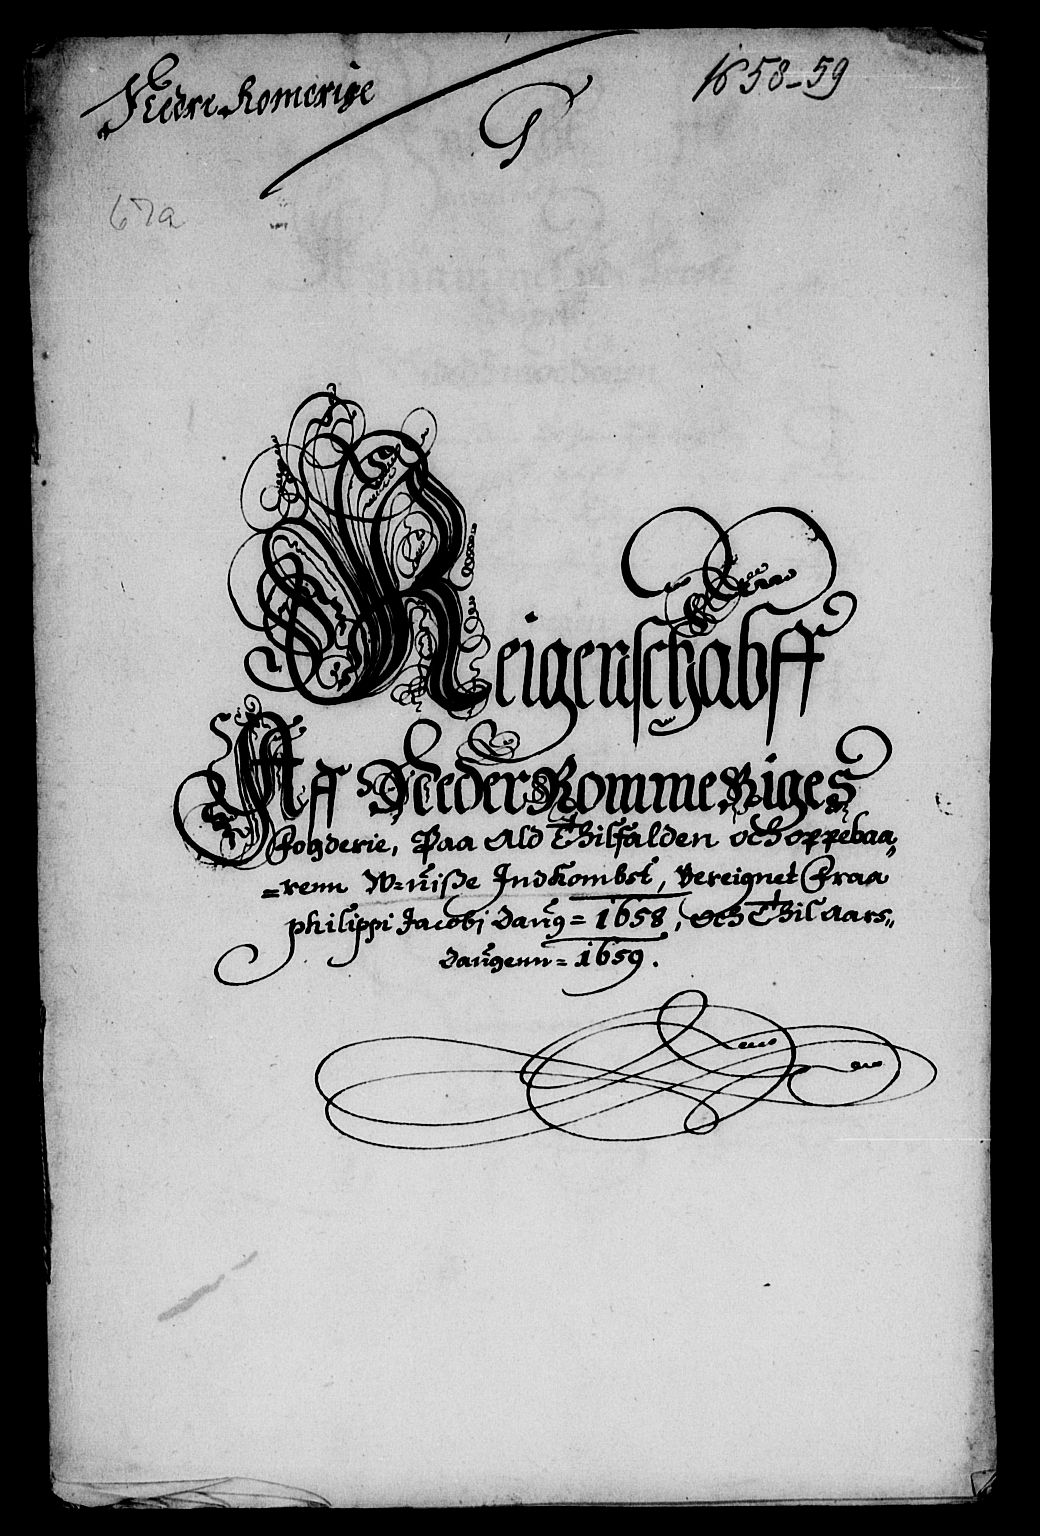 Nedre Romerige
1658-59
67a
Reigenschabff
Aff NederRommeRiges
Fogderie, Paa Ald Thilfalden och oppebaa„
=renn W-uiſse Indkombst, Bereignet Fraa
Philippi Jacobj Daug= 1658, och Thil Aars„
Daugenn= 1659.